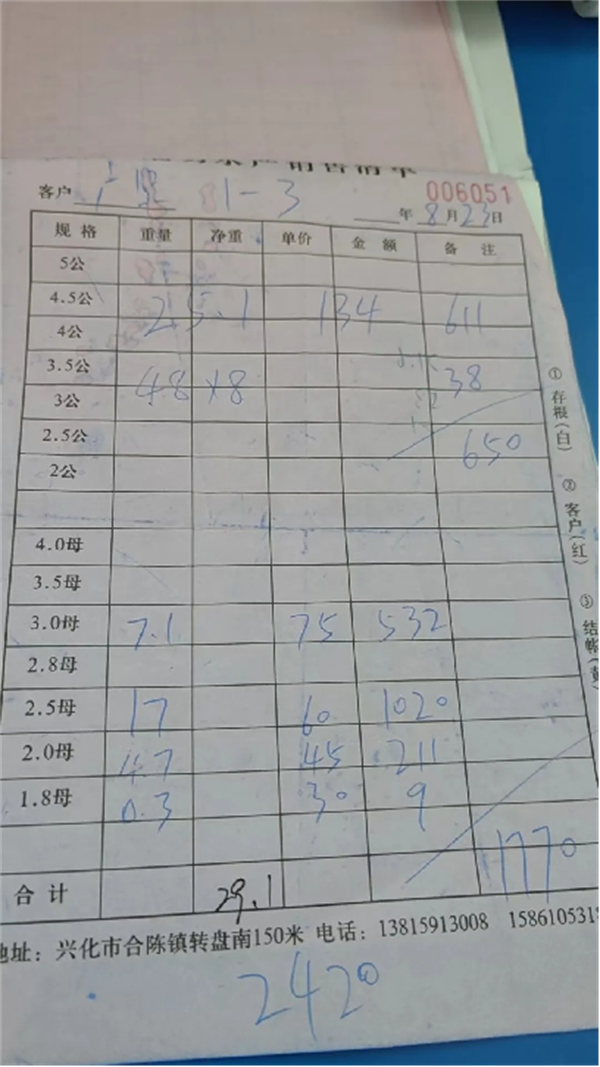 客户 1-3 006051
年 8 月 23 日
规格 重量 净重 单价 金额 备注
5公
4.5公 134 611
4公
3.5公 4.8 ×8 38
3公
2.5公 650
2公
4.0母
3.5母
3.0母 7.1 75 532
2.8母
2.5母 17 60 1020
2.0母 4.7 45 211
1.8母 0.3 30 9
1770
合计 29.1
地址：兴化市合陈镇转盘南150米 电话：13815913008 158610531
2420
①存根(白)
②客户(红)
③结帐(黄